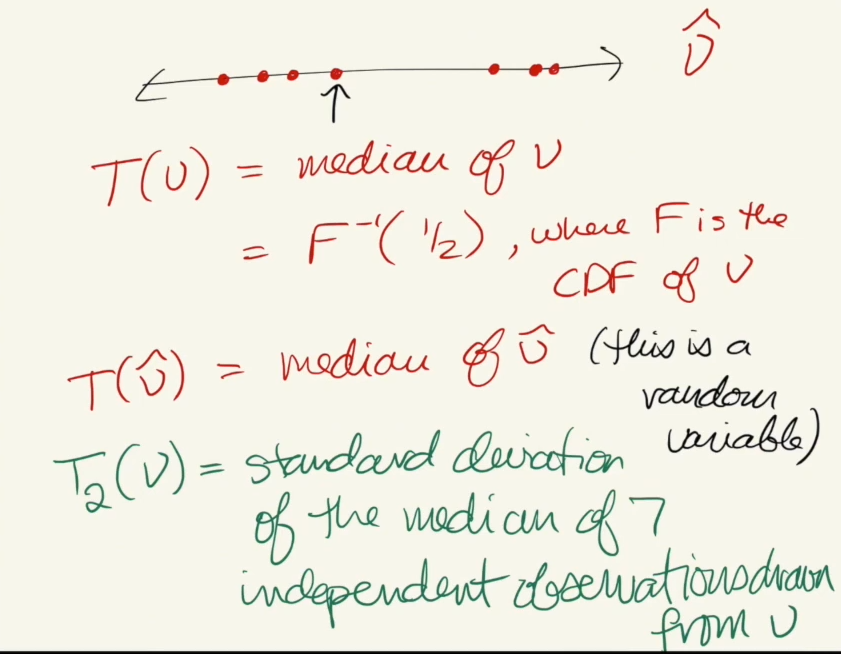 υ̂
T(υ) = median of υ
= F⁻¹(1/2), where F is the
CDF of υ
T(υ̂) = median of υ̂ (this is a
random
variable)
T₂(υ) = standard deviation
of the median of 7
independent observations drawn
from υ